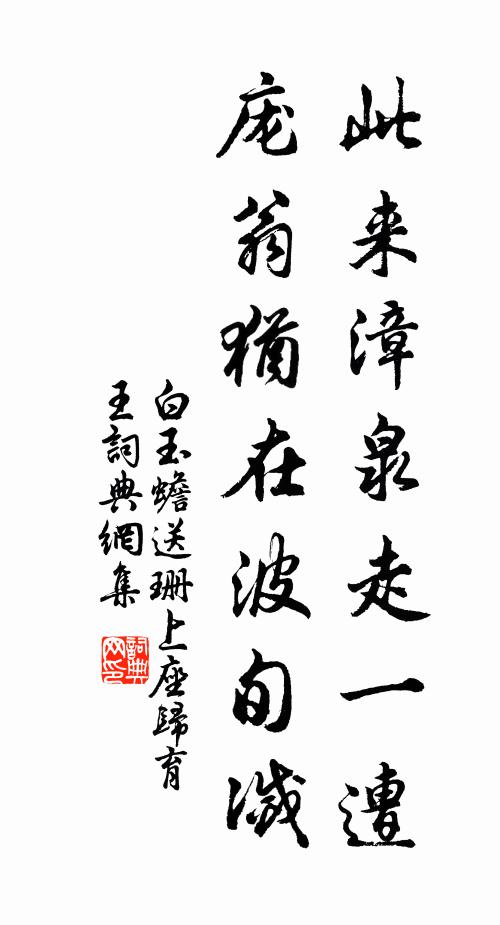 此来漳泉走一遭
庞翁犹在波旬灭
白玉蟾送珊上座歸育
王詞典網集
詞典网印